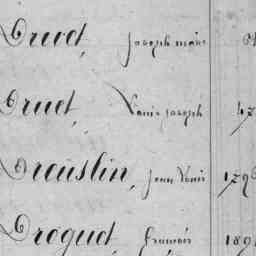 Druet, joseph marie
Druet, Louis joseph 47
Dreuslin, jean Louis 1796
Droguet, françois 189